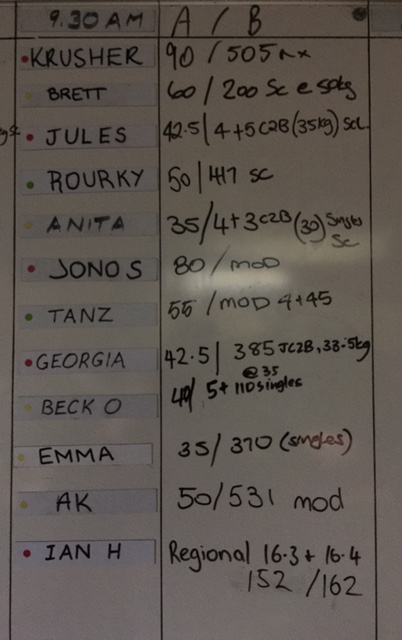 9.30 AM A / B
KRUSHER 90 / 505 rx
BRETT 60 / 200 Sc @ 50kg
JULES 42.5 | 4+5 C2B (35kg) Scl
ROURKY 50 | 417 SC
ANITA 35/4+3 C2B (30) Singles
Sc
JONO S 80 / MOD
TANZ 55 / MOD 4+45
GEORGIA 42.5 | 385 JC2B, 38.5kg
@ 35
BECK O 40/ 5+ 110 singles
EMMA 35/ 370 (singles)
AK 50/531 mod
IAN H Regional 16.3 + 16.4
152 / 162